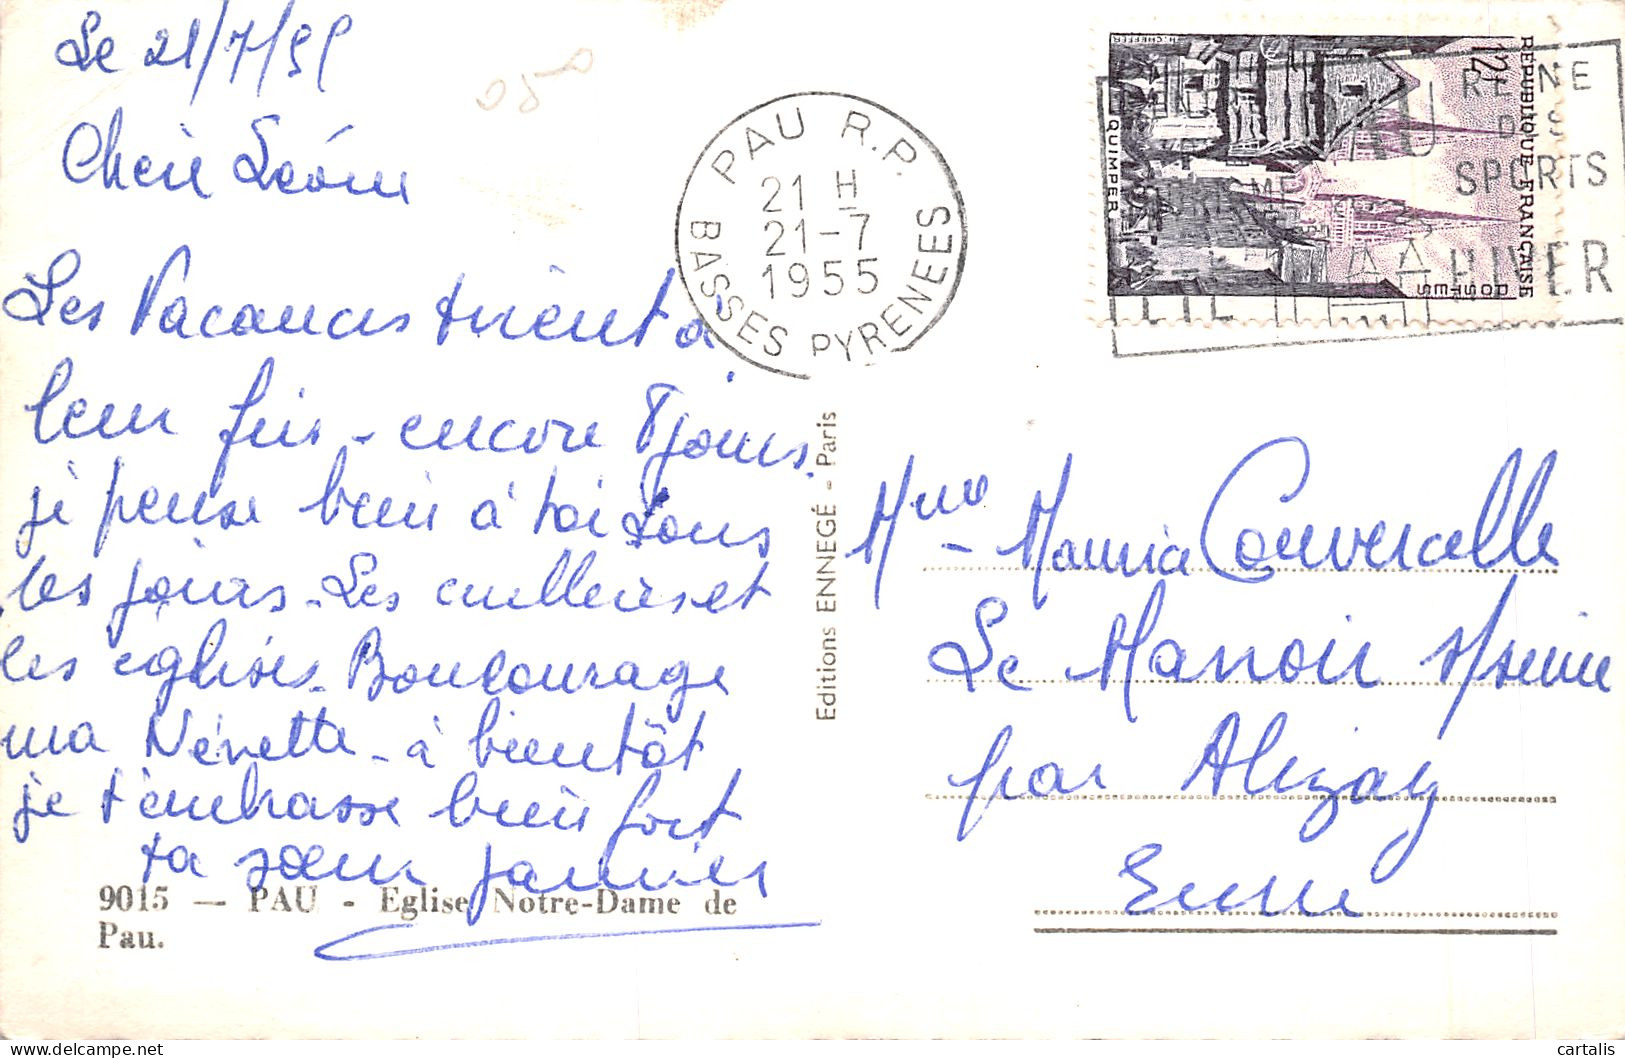 Le 21/7/55
Les Vacances tirent à
leur fin - encore 8 jours.
je pense bien à toi tous
les jours - Les cuillères et
les églises - Boncourage
ma Nénette - à bientôt
je t'embrasse bien fort
ta sœur
9015 — PAU - Eglise Notre-Dame de
Pau.
Editions ENNEGÉ - Paris
PAU R.P.
21 H
21-7
1955
BASSES PYRENEES
REPUBLIQUE-FRANÇAISE
12F
POSTES
QUIMPER
H. CHEFFER
PAU
REINE
DES
SPORTS
HIVER
Mme - Maurice Couvercelle
Le Manoir
par Alizay
Eure
cartalis